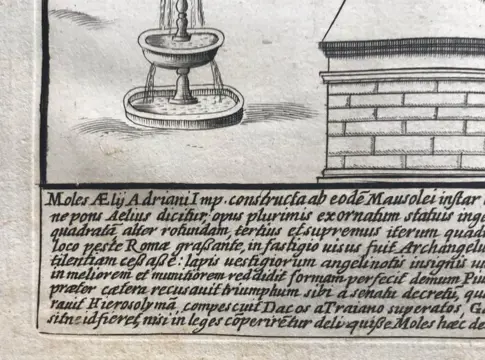 Moles Ælij Adriani Imp. constructa ab eodē Mausolei instar
ne pons Aelius dicitur, opus plurimis exornatum statuis inge
quadratā alter rotundam, tertius et supremus iterum quad
loco peste Romæ graßante, in fastigio uisus fuit Archangelu
tilentiam ceßaße: lapis uestigiorum angeli notis insignis
in meliorem et munitiorem reddidit formam perfecit demum Piu
præter cætera recusauit triumphum sibi a senatu decretū, qu
rauit Hierosolymā, compescuit Dacos a Traiano superatos, G
sit ne id fieret, nisi in leges Moles hæc de